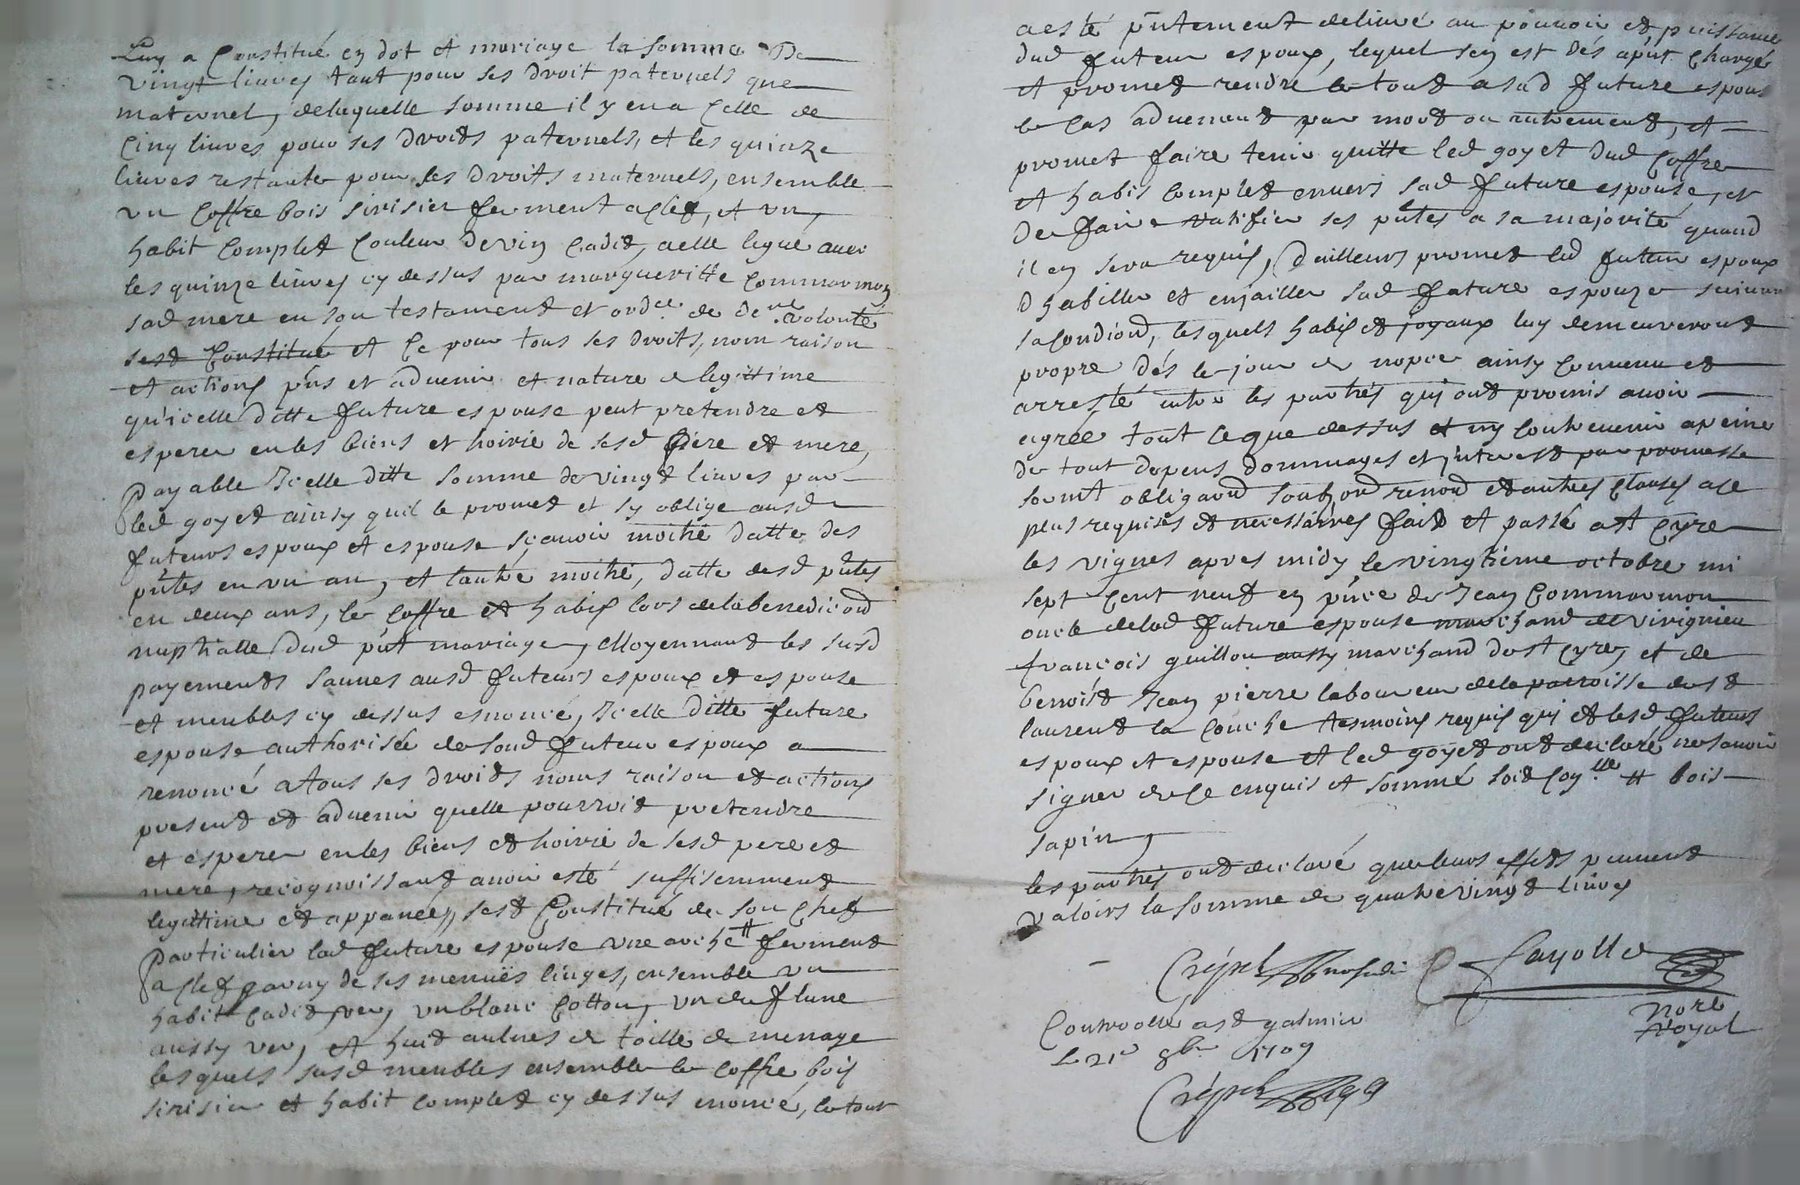 Luy a Constitué en dot et mariage la somme De
vingt liures tant pour ses droit paternels que
maternel, delaquelle somme il y en a Celle de
Cinq liures pour ses droits paternels, et les quinze
liures restante pour ses droits maternels, ensemble
vn Coffre bois sirisier ferment a Clef, et vn
habit Complet Couleur de vin Cadis, a elle legué auec
les quinze liures cy dessus par margueritte Commarmon
sad mere en son testament et ord.ce de de.re volonté
sest Constitué et Ce pour tous ses droits, nom raison
et actions pñs et aduenir et nature de legittime
qu'icelle ditte future espouse peut pretendre et
esperer en les biens et hoirie de sesd Pere et mere,
Payable Icelle ditte somme de vingt liures par
led goyet ainsy quil le promet et sy oblige ausd
futeurs espoux et espouse scauoir moitié datte des
pñtes en vn an, et l'autre moitié, datte desd pñtes
en deux ans, le Coffre et habis lors de la benediction
nuptialle dud pñt mariage, Moyennant les susd
payements saunes ausd futeurs espoux et espouse
et meubles cy dessus enoncé, Icelle ditte future
espouse authorisée de soud futeur espoux a
renoncé a tous ses droits noms raison et actions
present et aduenir quelle pourroit pretendre
et esperer en les biens et hoirie de sesd pere et
mere, recognoissant auoir esté suffisemment
legittime et appanée, sest Constitué de son Chef
Particulier lad future espouse vne arche # ferment
a Clef garny de ses menuës linges, ensemble vn
habit Cadis ver, vn blanc Cotton, vn de flune
aussy ver, et huit aulnes de toille de menage
lesquels susd meubles ensemble le Coffre bois
sirisier et habit Complet cy dessus enoncé, le tout
a esté pñtement deliuré au pouuoir et puissance
dud futeur espoux, lequel sen est dés apñt Chargé
et promet rendre le tout a sad future espouse
le Cas aduenant par mort ou autrement, et
promet faire tenir quitte led goyet dud Coffre
et habis Complet enuers sad future espouse, et
de faire ratifier ses pñtes a sa majorité quand
il en sera requis, dailleurs promet led futeur espoux
dhabiller et enjailler sad future espouze suiuant
sa Condiond, lesquels habis et joyaux luy demeureront
propre dés le jour de nopce ainsy Conuenu et
arresté entre les parties qui ont promis auoir
agreé tout Ceque dessus et ny Contreuenir a peine
de tout depens dommages et interest par promesse
sermt obligaond soubzond renond et autres Clauses a Ce
plus requises et necessaires fait et passé a st Cyre
les vignes apres midy le vingtieme octobre mi
sept Cent neuf en pñce de Jean Commarmon
oncle delad future espouse marchand de virignieu
francois guillou aussy marchand de st Cyre, et de
benoist Jean pierre laboureur de la parroisse de st
laurent la Conche tesmoins requis qui et lesd futeurs
espoux et espouse et led goyet ont declaré ne sauoir
signer de Ce enquis et sommé soit Coy.lle # bois
sapin,
les parties ont declaré que leurs effets peuuent
valoirs la somme de quatre vingt liures
Crépet Fayolle
Nore
Royal
Controollé a st galmier
le 21e 8bre 1709
Crépet